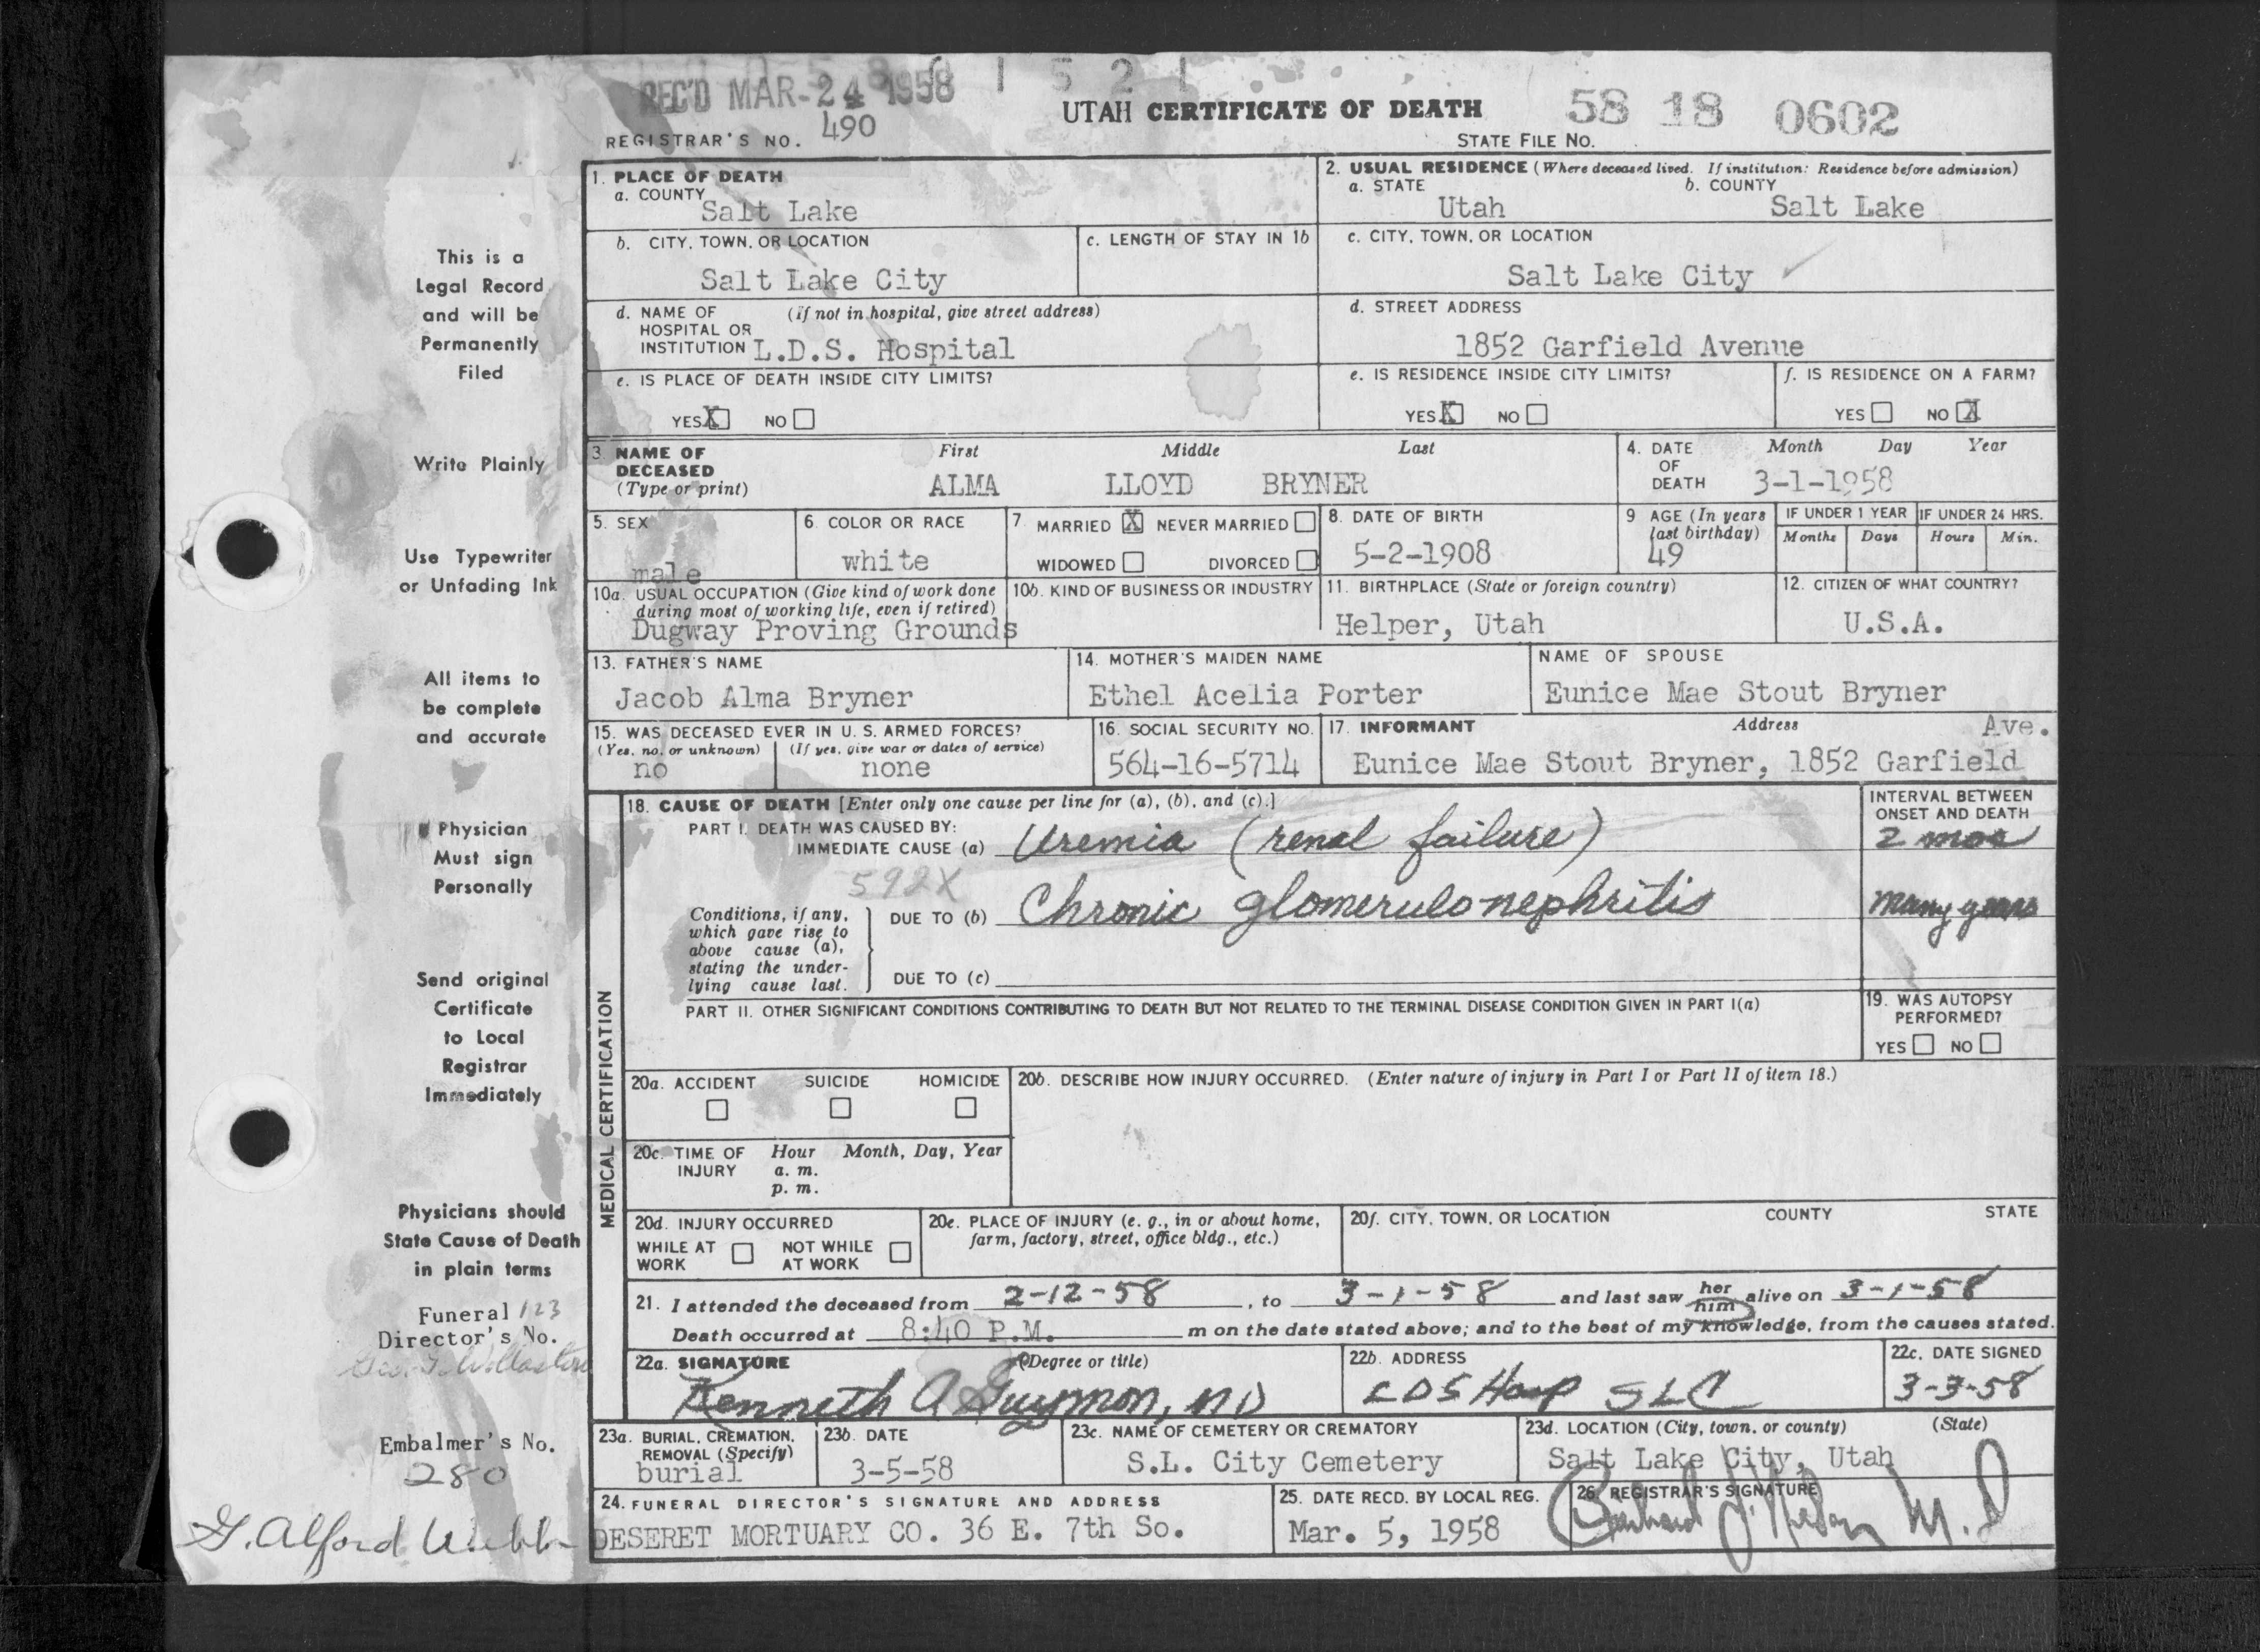 REC'D MAR-24 1958
1 5 2 1
UTAH CERTIFICATE OF DEATH
58 18 0602
REGISTRAR'S NO. 490
STATE FILE NO.
1. PLACE OF DEATH
a. COUNTY
Salt Lake
2. USUAL RESIDENCE (Where deceased lived. If institution: Residence before admission)
a. STATE
Utah
b. COUNTY
Salt Lake
b. CITY, TOWN, OR LOCATION
Salt Lake City
c. LENGTH OF STAY IN 1b
c. CITY, TOWN, OR LOCATION
Salt Lake City
d. NAME OF (if not in hospital, give street address)
HOSPITAL OR
INSTITUTION L.D.S. Hospital
d. STREET ADDRESS
1852 Garfield Avenue
e. IS PLACE OF DEATH INSIDE CITY LIMITS?
YES X NO
e. IS RESIDENCE INSIDE CITY LIMITS?
YES X NO
f. IS RESIDENCE ON A FARM?
YES NO X
3. NAME OF DECEASED
(Type or print)
First Middle Last
ALMA LLOYD BRYNER
4. DATE OF DEATH
Month Day Year
3-1-1958
5. SEX
male
6. COLOR OR RACE
white
7. MARRIED X NEVER MARRIED
WIDOWED DIVORCED
8. DATE OF BIRTH
5-2-1908
9 AGE (In years last birthday)
49
IF UNDER 1 YEAR
Months Days
IF UNDER 24 HRS.
Hours Min.
10a. USUAL OCCUPATION (Give kind of work done during most of working life, even if retired)
Dugway Proving Grounds
10b. KIND OF BUSINESS OR INDUSTRY
11. BIRTHPLACE (State or foreign country)
Helper, Utah
12. CITIZEN OF WHAT COUNTRY?
U.S.A.
13. FATHER'S NAME
Jacob Alma Bryner
14. MOTHER'S MAIDEN NAME
Ethel Acelia Porter
NAME OF SPOUSE
Eunice Mae Stout Bryner
15. WAS DECEASED EVER IN U. S. ARMED FORCES?
(Yes, no, or unknown) (If yes, give war or dates of service)
no none
16. SOCIAL SECURITY NO.
564-16-5714
17. INFORMANT Address
Ave.
Eunice Mae Stout Bryner, 1852 Garfield
MEDICAL CERTIFICATION
18. CAUSE OF DEATH [Enter only one cause per line for (a), (b), and (c).]
PART I. DEATH WAS CAUSED BY:
IMMEDIATE CAUSE (a) Uremia (renal failure)
INTERVAL BETWEEN
ONSET AND DEATH
2 mos
592X
Conditions, if any,
which gave rise to
above cause (a),
stating the under-
lying cause last.
DUE TO (b) Chronic glomerulonephritis
many years
DUE TO (c)
PART II. OTHER SIGNIFICANT CONDITIONS CONTRIBUTING TO DEATH BUT NOT RELATED TO THE TERMINAL DISEASE CONDITION GIVEN IN PART I(a)
19. WAS AUTOPSY
PERFORMED?
YES NO
20a. ACCIDENT SUICIDE HOMICIDE
20b. DESCRIBE HOW INJURY OCCURRED. (Enter nature of injury in Part I or Part II of item 18.)
20c. TIME OF INJURY
Hour Month, Day, Year
a. m.
p. m.
20d. INJURY OCCURRED
WHILE AT WORK
NOT WHILE AT WORK
20e. PLACE OF INJURY (e. g., in or about home, farm, factory, street, office bldg., etc.)
20f. CITY, TOWN, OR LOCATION COUNTY STATE
21. I attended the deceased from 2-12-58, to 3-1-58 and last saw her him alive on 3-1-58
Death occurred at 8:40 P.M. m on the date stated above; and to the best of my knowledge, from the causes stated.
22a. SIGNATURE (Degree or title)
Kenneth A Guymon, MD
22b. ADDRESS
LDS Hosp SLC
22c. DATE SIGNED
3-3-58
23a. BURIAL, CREMATION, REMOVAL (Specify)
burial
23b. DATE
3-5-58
23c. NAME OF CEMETERY OR CREMATORY
S.L. City Cemetery
23d. LOCATION (City, town, or county) (State)
Salt Lake City, Utah
24. FUNERAL DIRECTOR'S SIGNATURE AND ADDRESS
DESERET MORTUARY CO. 36 E. 7th So.
25. DATE RECD. BY LOCAL REG.
Mar. 5, 1958
26. REGISTRAR'S SIGNATURE
M.D
This is a
Legal Record
and will be
Permanently
Filed
Write Plainly
Use Typewriter
or Unfading Ink
All items to
be complete
and accurate
Physician
Must sign
Personally
Send original
Certificate
to Local
Registrar
Immediately
Physicians should
State Cause of Death
in plain terms
Funeral 123
Director's No.
Embalmer's No.
280
G. Alford Webb